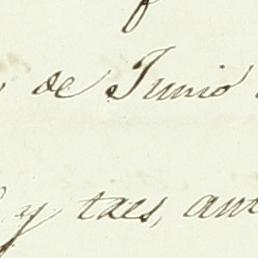 de Junio
y taes, ant